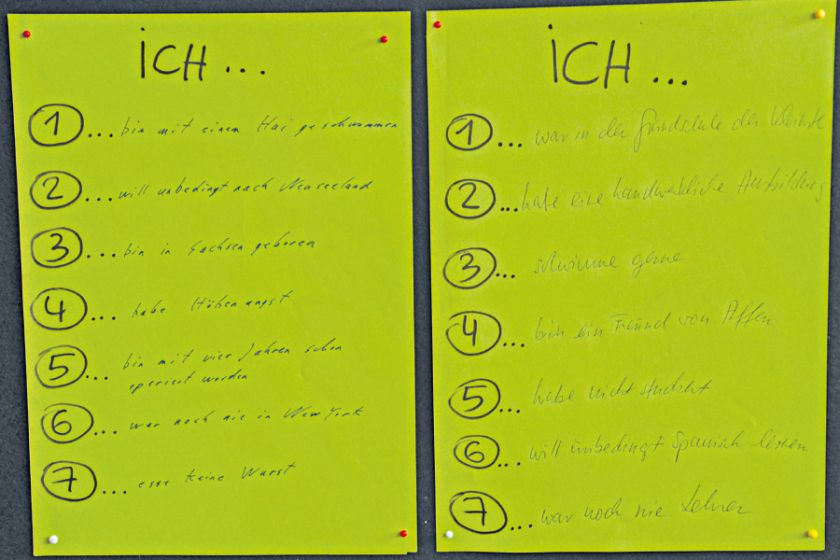 ICH...
1 ...bin mit einem Hai geschwommen
2 ...will unbedingt nach Neuseeland
3 ...bin in Sachsen geboren
4 ... habe Höhenangst
5 ... bin mit vier Jahren schon
operiert worden
6 ... war noch nie in New York
7 ... esse keine Wurst
ICH...
1 ... war in der Grundschule der Kleinste
2 ...habe eine handwerkliche Ausbildung
3 ... schwimme gerne
4 ... bin ein Freund von Affen
5 ... habe nicht studiert
6 ... will unbedingt Spanisch lernen
7 ... war noch nie Lehrer